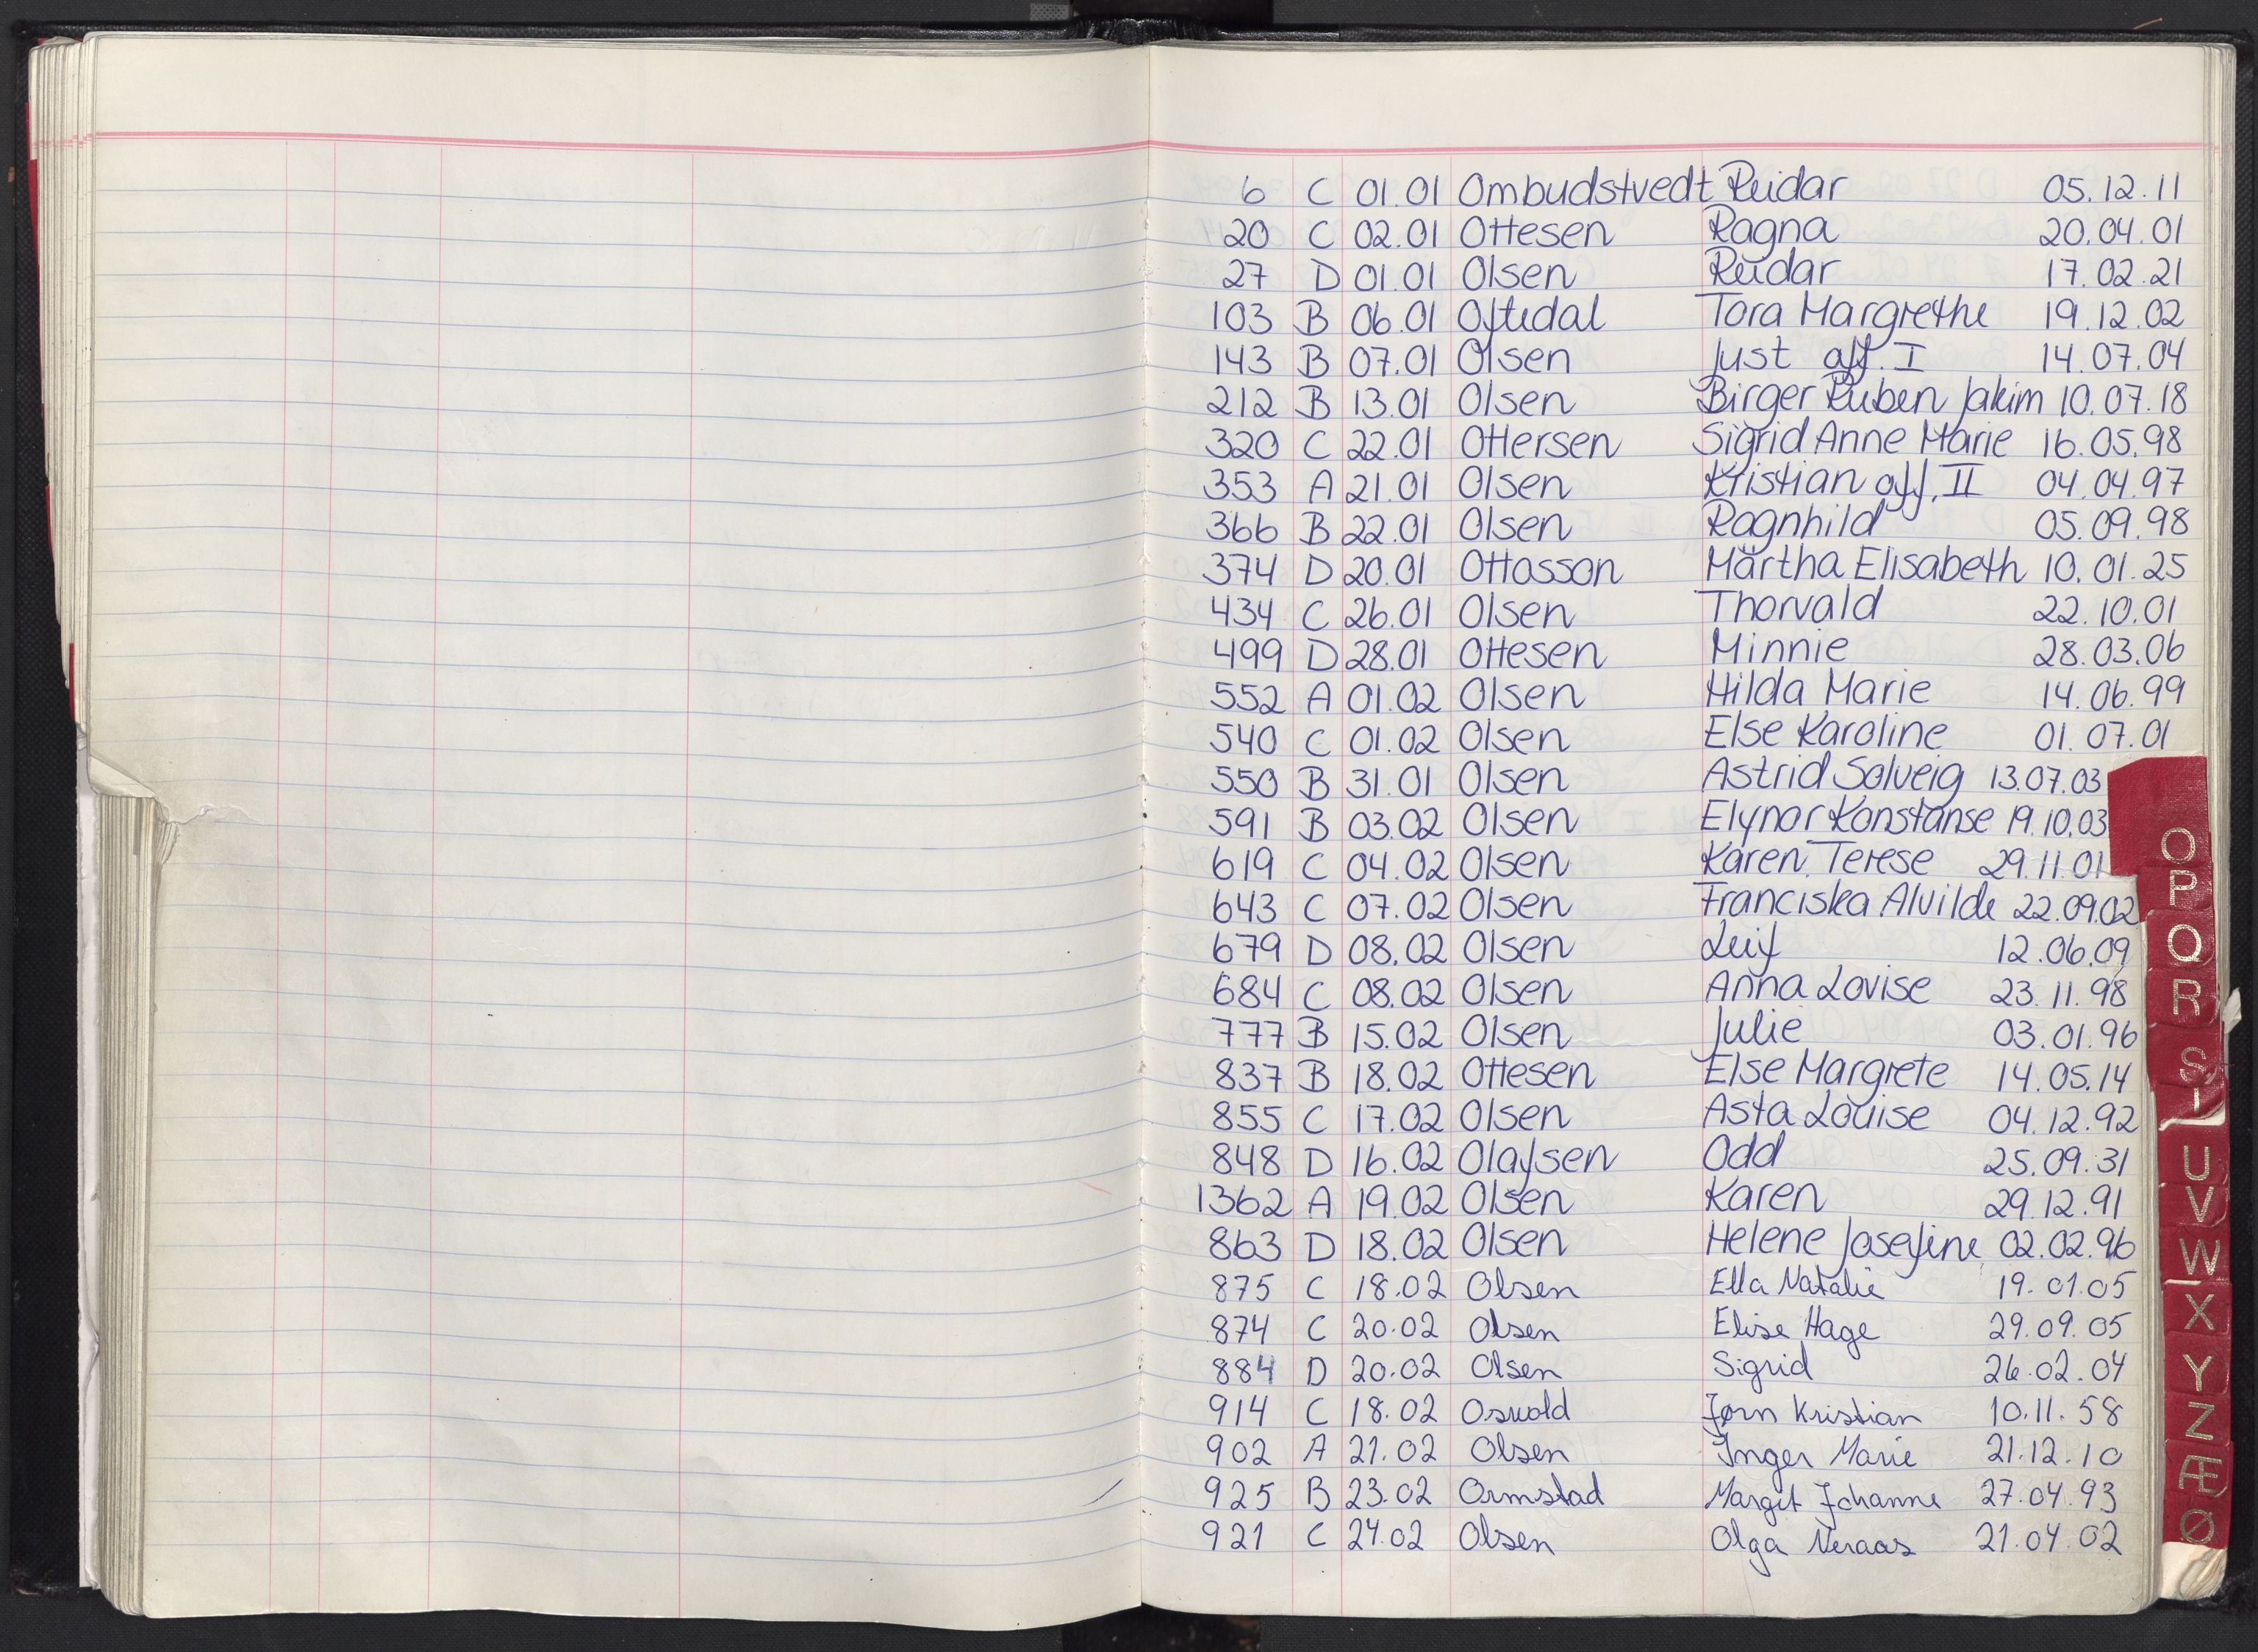 6 C 01.01 Ombudstvedt Reidar 05.12.11
20 C 02.01 Ottesen Ragna 20.04.01
27 D 01.01 Olsen Reidar 17.02.21
103 B 06.01 Oftedal Tora Margrethe 19.12.02
143 B 07.01 Olsen Just aff. I 14.07.04
212 B 13.01 Olsen Birger Ruben Jakim 10.07.18
320 C 22.01 Ottersen Sigrid Anne Marie 16.05.98
353 A 21.01 Olsen Kristian aff. II 04.04.97
366 B 22.01 Olsen Ragnhild 05.09.98
374 D 20.01 Ottosson Märtha Elisabeth 10.01.25
434 C 26.01 Olsen Thorvald 22.10.01
499 D 28.01 Ottesen Minnie 28.03.06
552 A 01.02 Olsen Hilda Marie 14.06.99
540 C 01.02 Olsen Else Karoline 01.07.01
550 B 31.01 Olsen Astrid Solveig 13.07.03
591 B 03.02 Olsen Elynor Konstanse 19.10.03
619 C 04.02 Olsen Karen Terese 29.11.01
643 C 07.02 Olsen Franciska Alvilde 22.09.02
679 D 08.02 Olsen Leif 12.06.09
684 C 08.02 Olsen Anna Lovise 23.11.98
777 B 15.02 Olsen Julie 03.01.96
837 B 18.02 Ottesen Else Margrete 14.05.14
855 C 17.02 Olsen Asta Louise 04.12.92
848 D 16.02 Olafsen Odd 25.09.31
1362 A 19.02 Olsen Karen 29.12.91
863 D 18.02 Olsen Helene Josefine 02.02.96
875 C 18.02 Olsen Ella Natalie 19.01.05
874 C 20.02 Olsen Elise Hage 29.09.05
884 D 20.02 Olsen Sigrid 26.02.04
914 C 18.02 Osvold Jørn Kristian 10.11.58
902 A 21.02 Olsen Inger Marie 21.12.10
925 B 23.02 Ormstad Margit Johanne 27.04.93
921 C 24.02 Olsen Olga Neraas 21.04.02
O
P
Q
R
S
T
U
V
W
X
Y
Z
Æ
Ø